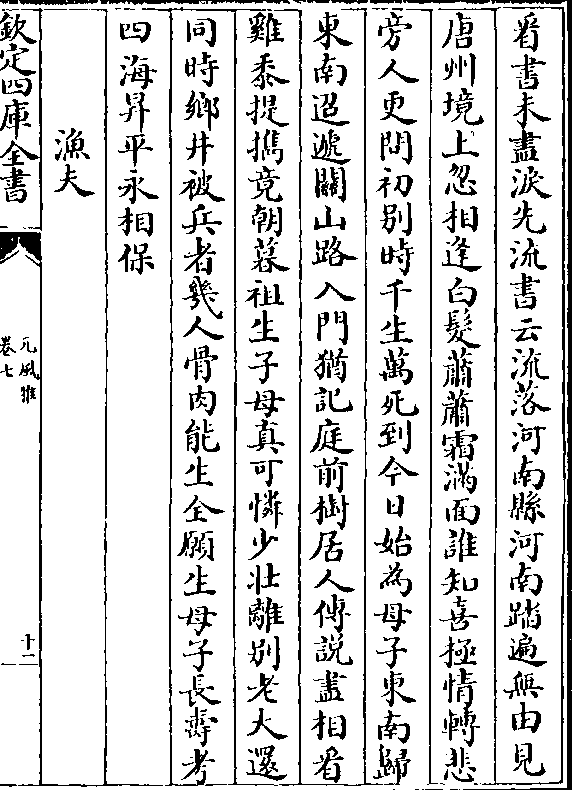 看書未盡淚先流書云流落河南縣河南踏遍無由見
唐州境上忽相逢白髮蕭蕭霜滿面誰知喜極情轉悲
旁人更問初別時千生萬死到今日始為母子東南歸
東南迢遞關山路入門猶記庭前樹居人傳說盡相看
雞黍提攜竟朝暮祖生子母真可憐少壯離別老大還
同時鄉井被兵者幾人骨肉能生全願生母子長壽考
四海昇平永相保
漁夫
欽定四庫全書
元風雅
卷七
十二